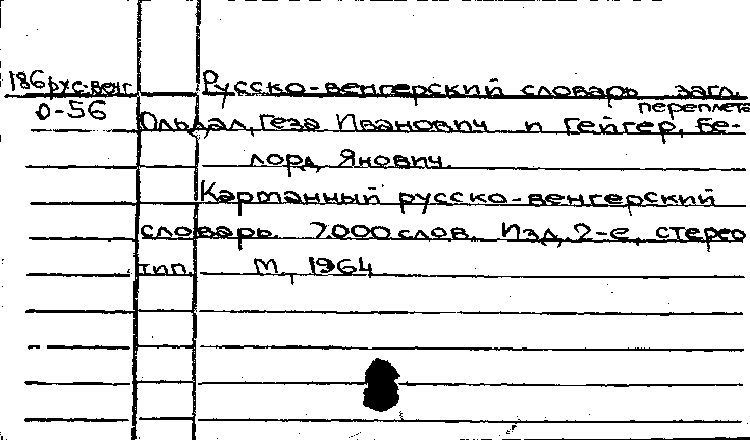 186 рус-венг Русско-венгерский словарь загл.
О-56 переплета
Ольдал, Геза Иванович и Гейгер, Бе-
лорд Янович.
Картанный русско-венгерский
словарь. 7.000 слов. Изд. 2-е, стерео
тип. М., 1964